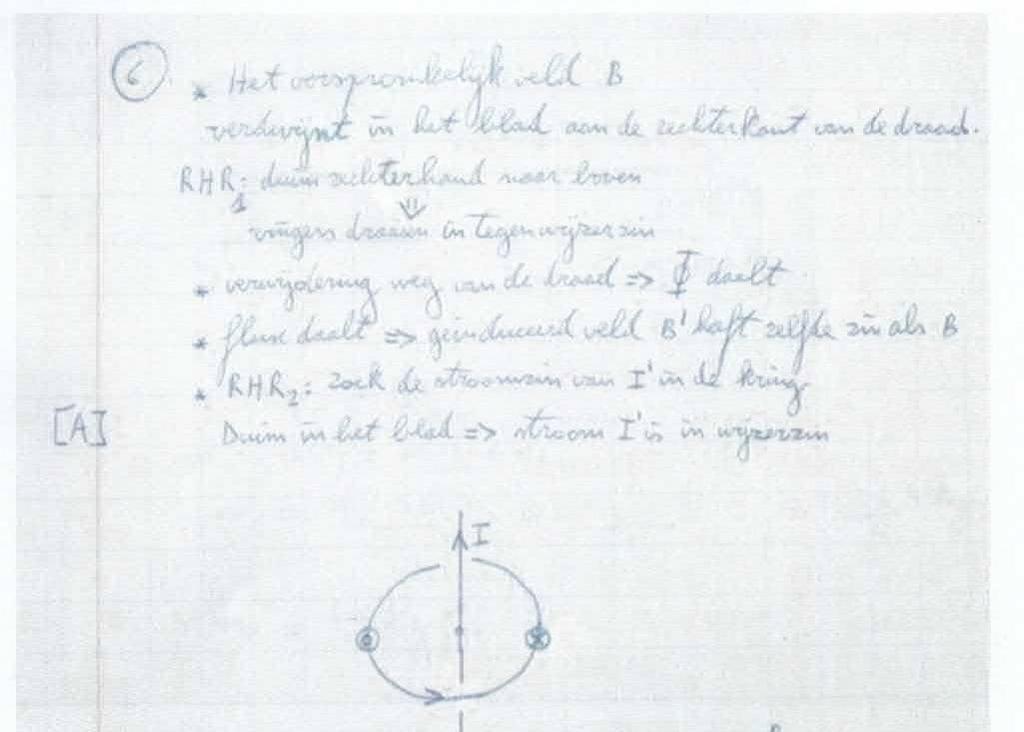 6
* Het oorspronkelijk veld B
verdwijnt in het blad aan de rechterkant van de draad.
RHR1: duim rechterhand naar boven
⇓
vingers draaien in tegenwijzerzin
* verwijdering weg van de draad => Φ daalt
* flux daalt => geïnduceerd veld B' heeft zelfde zin als B
* RHR2: zoek de stroomzin van I' in de kring
[A] Duim in het blad => stroom I' is in wijzerzin
I